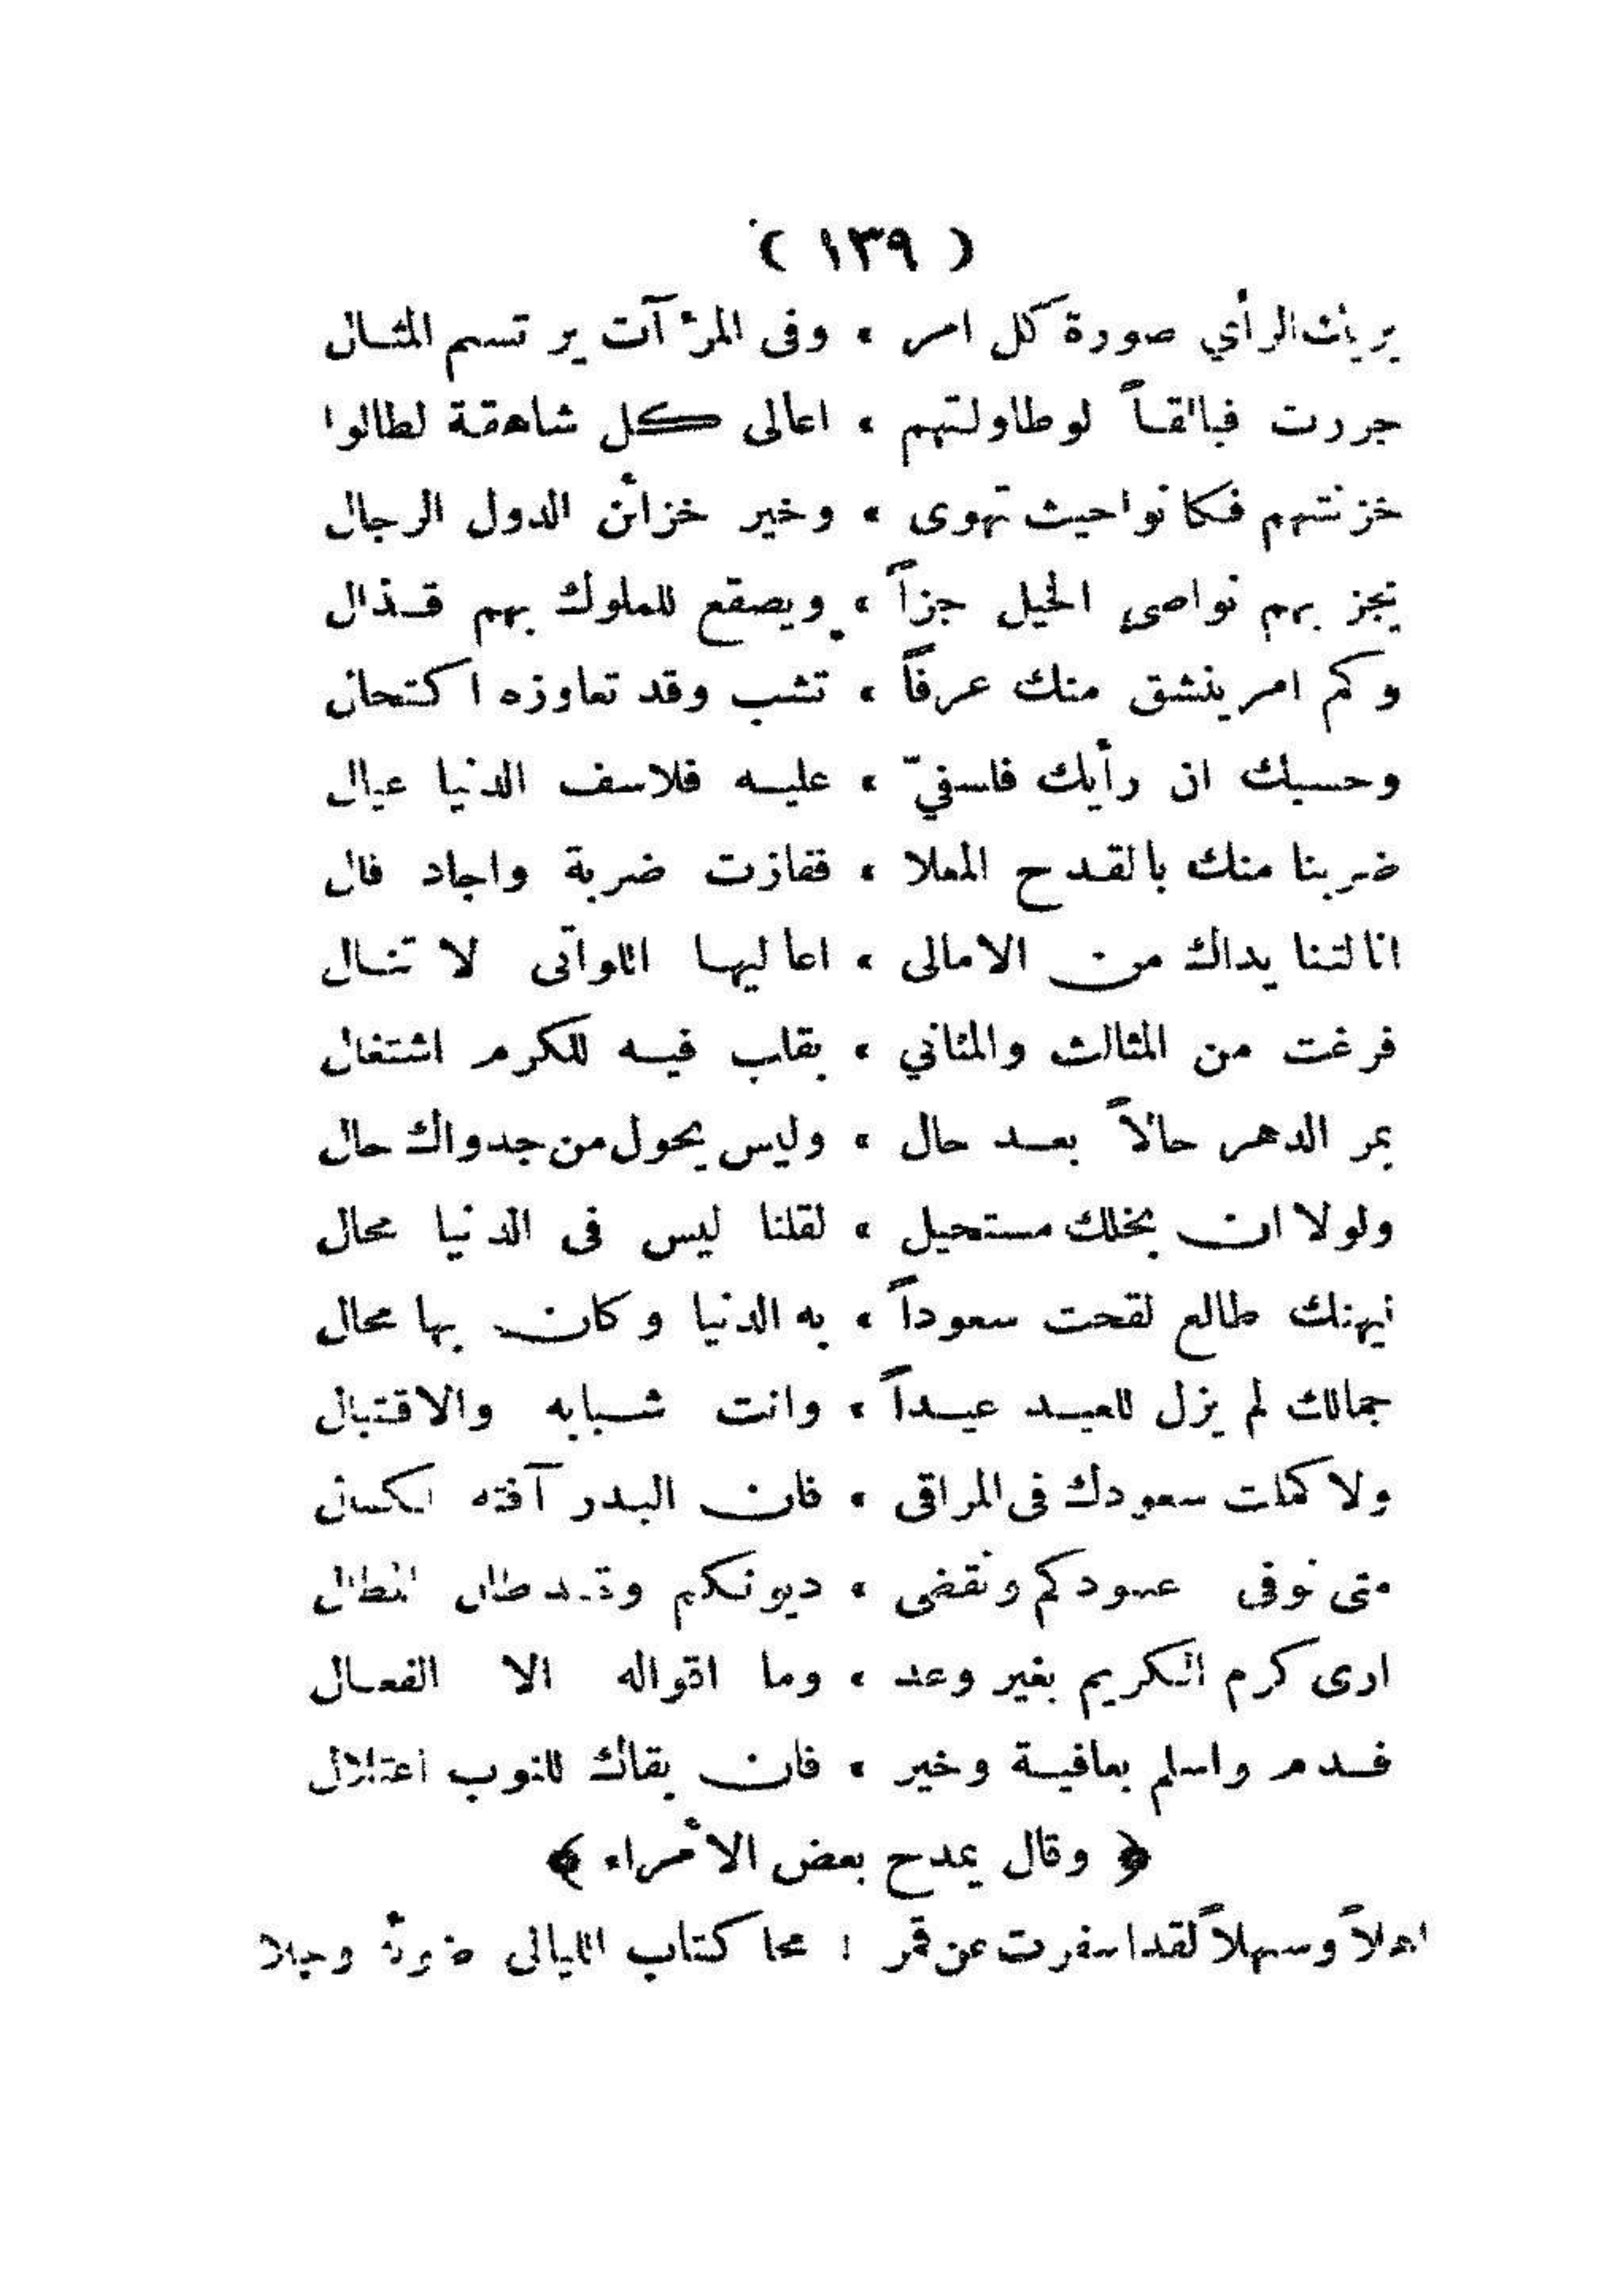 ( ١٣٩ )
يريك الرأي صورة كل امر ، وفى المرﺀآت يرتسم المثال
جررت فيالقاً لو طاولتهم ، اعالى كل شاهقة لطالوا
خزنتهم فكانوا حيث تهوى ، وخير خزائن الدول الرجال
يجز بهم نواصى الخيل جزاً ، ويصقع للملوك بهم قذال
وكم امر ينشق منك عرفاً ، تشب وقد تعاوزه اكتحال
وحسبك ان رأيك فلسفيّ ، عليه فلاسف الدنيا عيال
ضربنا منك بالقدح المعلا ، ففازت ضربة واجاد فال
انالتنا يداك من الامالى ، اعاليها اللواتى لا تنال
فرغت من المثالث والمثاني ، بقلب فيه للكرم اشتغال
يمر الدهر حالاً بعد حال ، وليس يحول من جدواك حال
ولولا ان بخلك مستحيل ، لقلنا ليس فى الدنيا محال
ليهنك طالع لقحت سعوداً ، به الدنيا وكان بها محال
جمالك لم يزل للعيد عيداً ، وانت شبابه والاقتبال
ولا كملت سعودك فى المراقى ، فان البدر آفته الكمال
متى نوفى عهودكم ونقضى ، ديونكم وقد طال المطال
ارى كرم الكريم بغير وعد ، وما اقواله الا الفعال
فدم واسلم بعافية وخير ، فان بقاك للنوب اعتلال
﴿ وقال يمدح بعض الأمراء ﴾
اهلاً وسهلاً لقد اسفرت عن قمر ، محا كتاب الليالى ضوءه وجلا